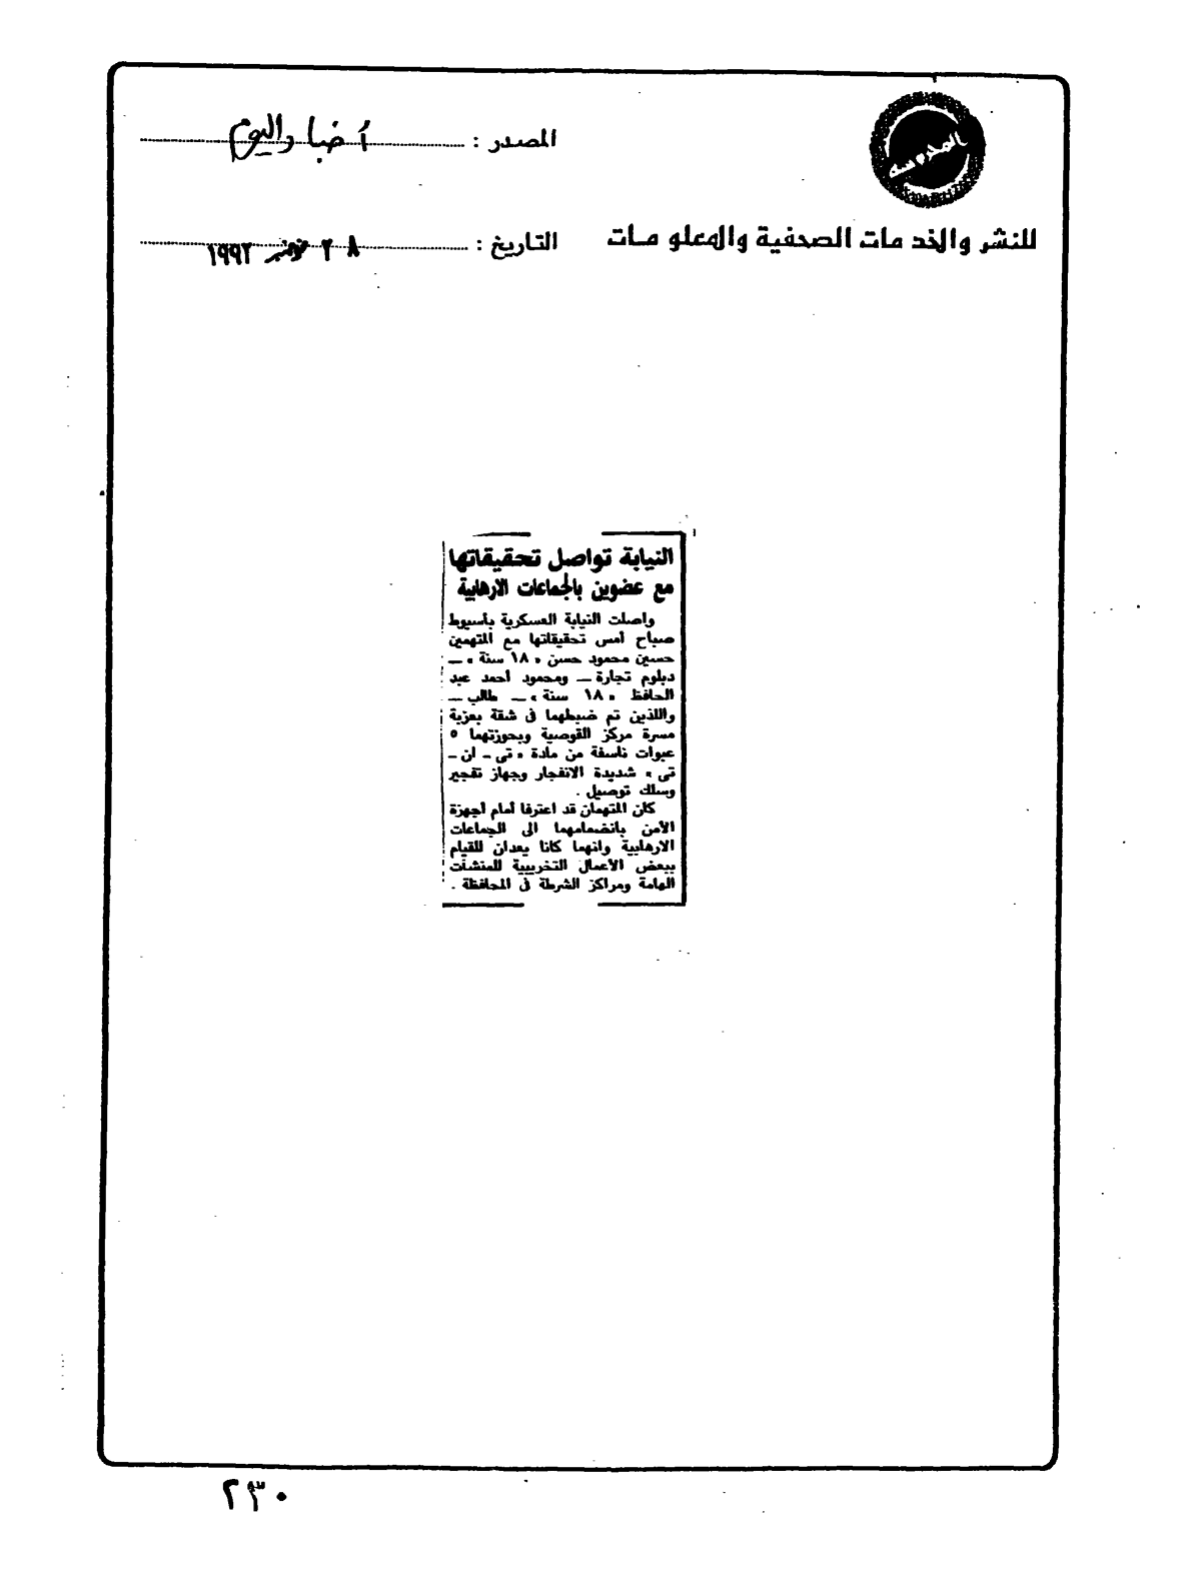 المحروسة
المصدر : أخبار اليوم
للنشر والخدمات الصحفية والمعلومات
التاريخ : ٢٨ نوفمبر ١٩٩٢
النيابة تواصل تحقيقاتها
مع عضوين بالجماعات الارهابية
واصلت النيابة العسكرية بأسيوط
صباح أمس تحقيقاتها مع المتهمين
حسين محمود حسن « ١٨ سنة » ــ
دبلوم تجارة ــ ومحمود أحمد عبد
الحافظ « ١٨ سنة » ــ طالب ــ
واللذين تم ضبطهما فى شقة بعزبة
مسرة مركز القوصية وبحوزتهما ٥
عبوات ناسفة من مادة « تى ــ ان ــ
تى » شديدة الانفجار وجهاز تفجير
وسلك توصيل .
كان المتهمان قد اعترفا أمام أجهزة
الأمن بانضمامهما الى الجماعات
الارهابية وانهما كانا يعدان للقيام
ببعض الأعمال التخريبية للمنشآت
الهامة ومراكز الشرطة فى المحافظة .
٢٣٠